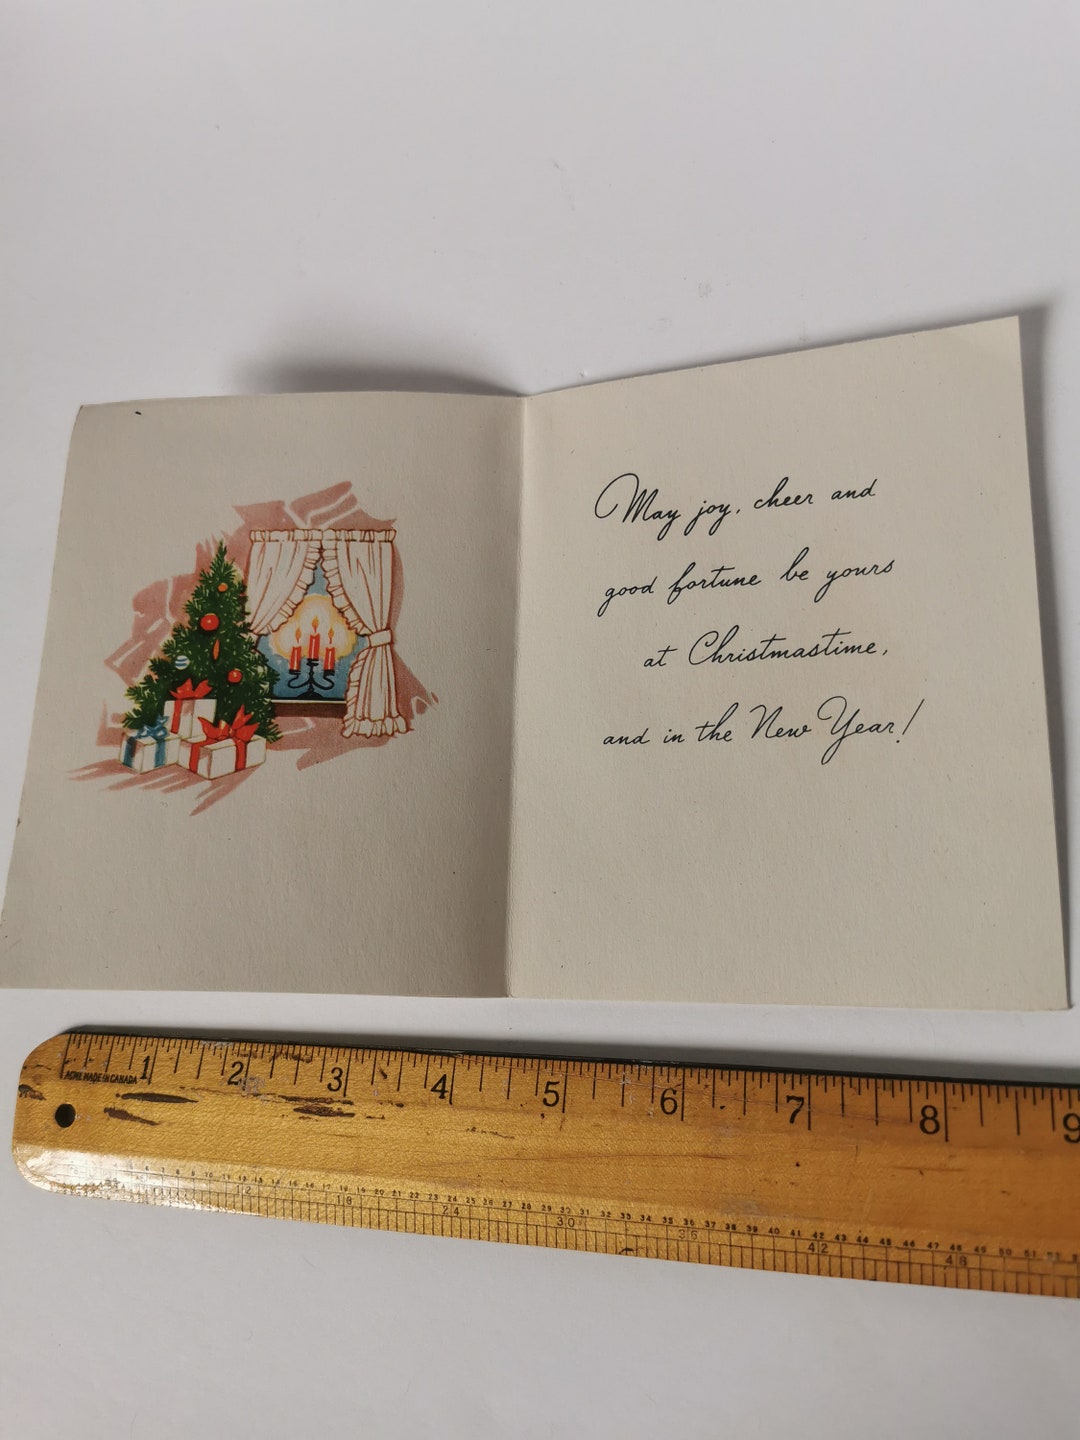 May joy, cheer and
good fortune be yours
at Christmastime,
and in the New Year!
1 2 3 4 5 6 7 8 9
ACME MADE IN CANADA
12 18 24 30 36 42 48